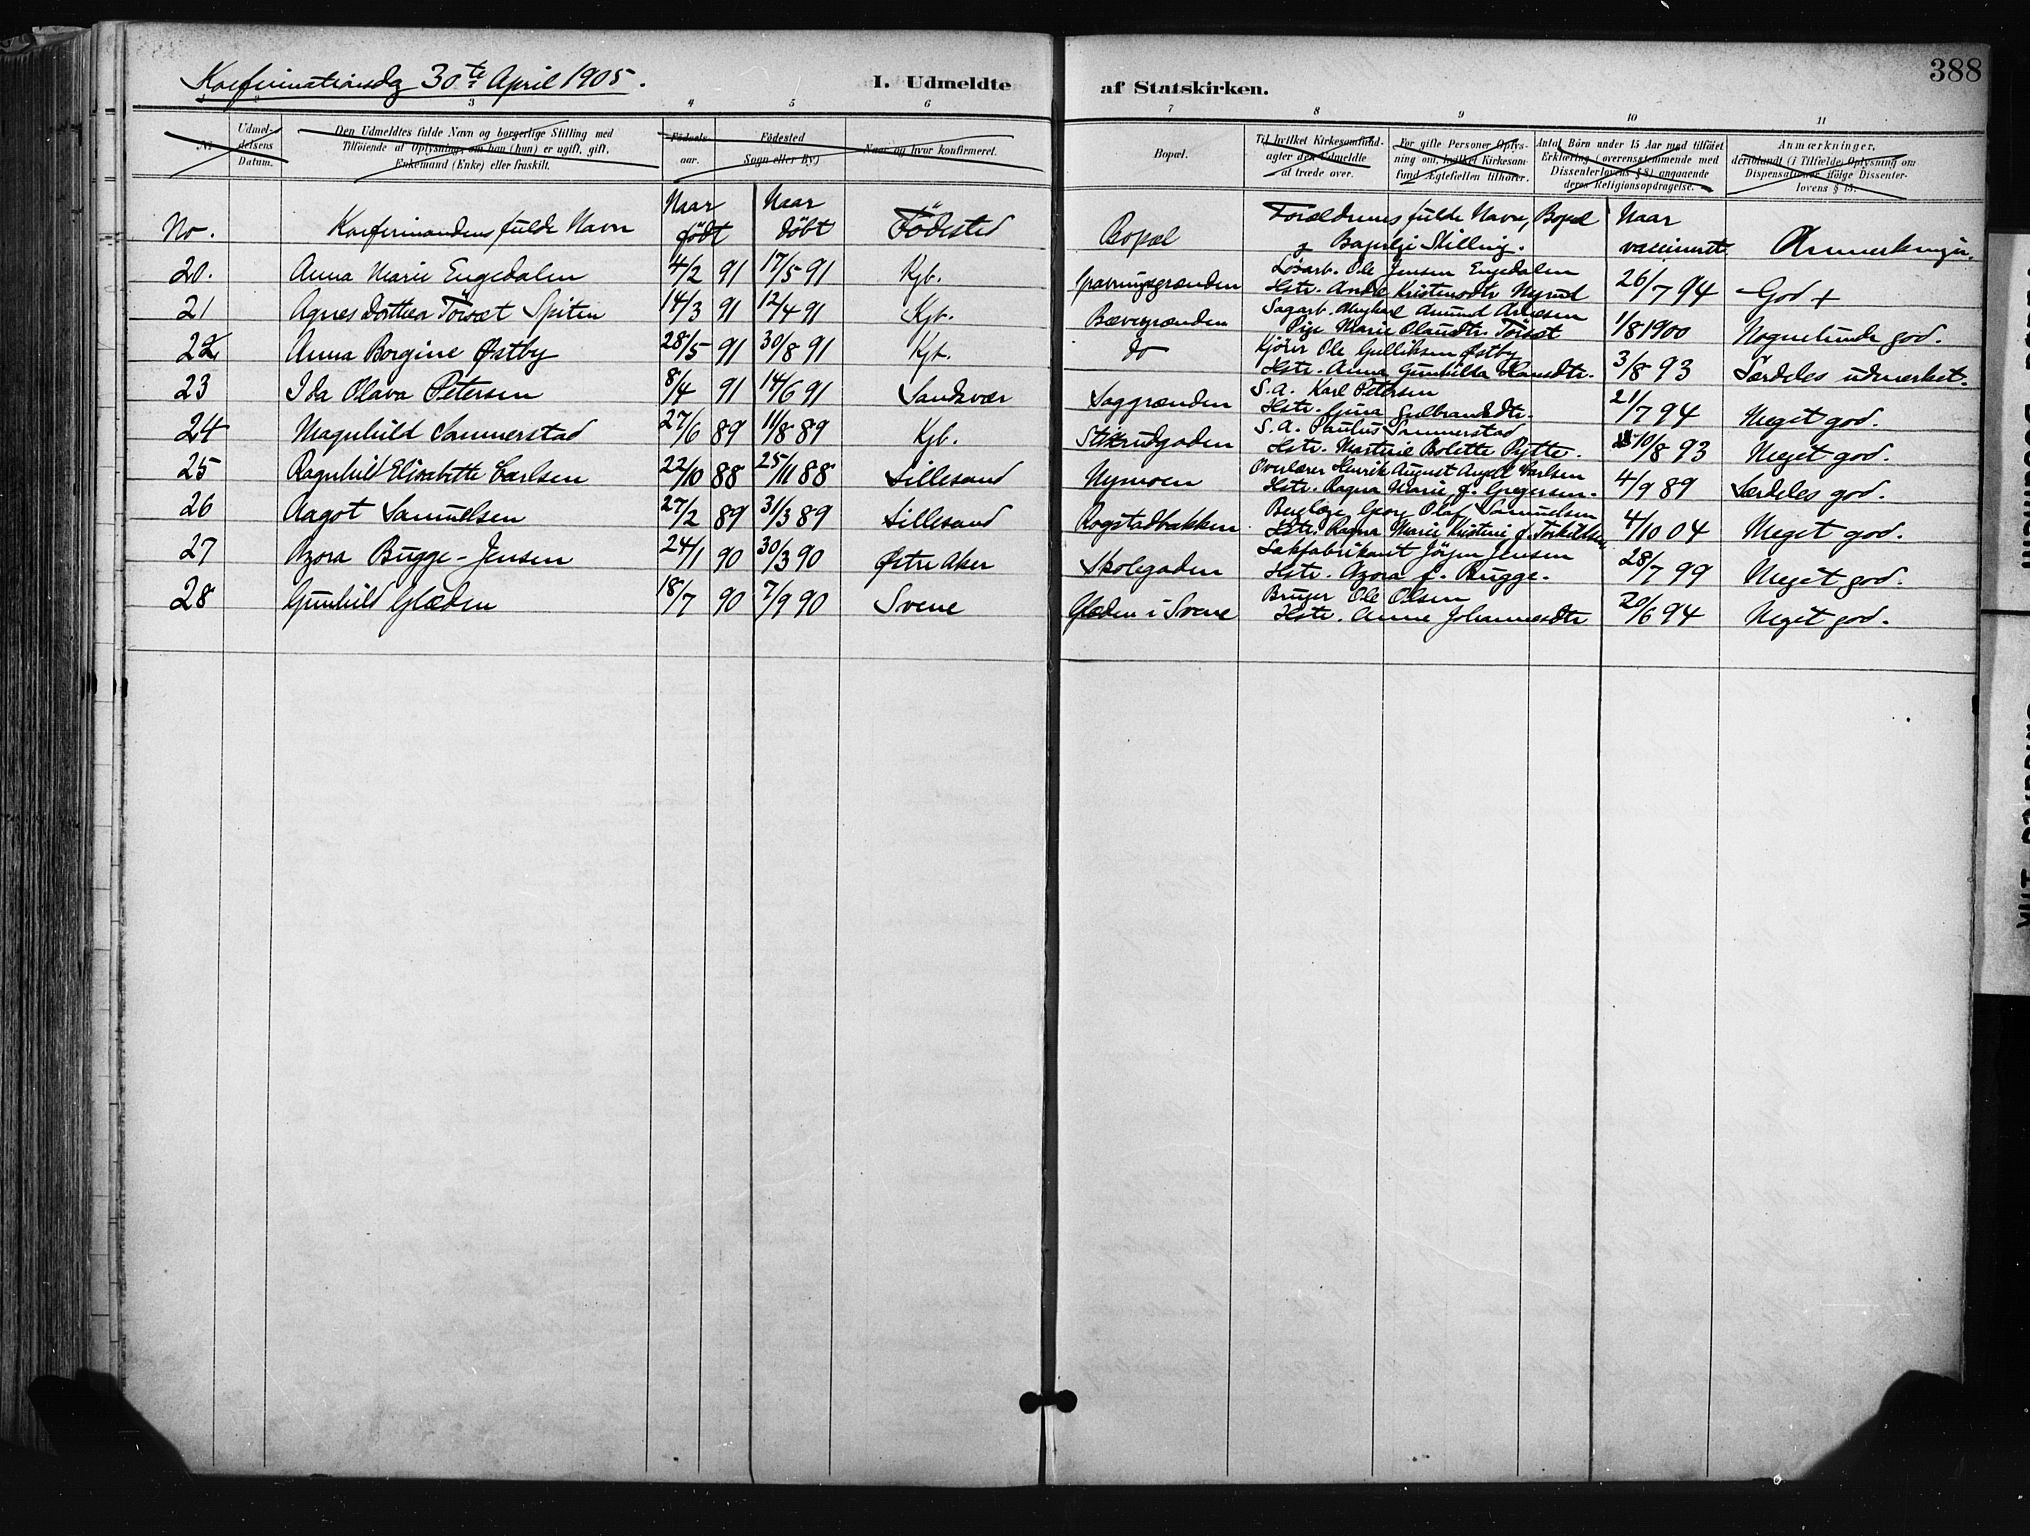 Konfirmationsdg 30te April 1905.
I. Udmeldte af Statskirken.
388
3 4 5 6 7 8 9 10 11
Nr.
Udmeldelsens Datum.
Den Udmeldtes fulde Navn og borgerlige Stilling med
Tilføiende af Oplysning, om han (hun) er ugift, gift,
Enkemand (Enke) eller fraskilt.
Fødselsaar.
Fødested
Sogn eller By)
Naar og hvor konfirmeret.
Bopæl.
Til hvilket Kirkesamfund
agter den Udmeldte
at træde over.
For gifte Personer Oplysning om, hvilket Kirkesamfund Ægtefællen tilhører.
Antal Børn under 15 Aar med tilføiet
Erklæring (overensstemmende med
Dissenterlovens § 8) angaaende
deres Religionsopdragelse.
Anmærkninger,
deriblandt (i Tilfælde) Oplysning om
Dispensationer ifølge Dissenterlovens § 15.
No. Konfirmandens fulde Navn Naar født Naar døbt Fødested Bopæl Forældrenes fulde Navn, Bopæl Naar vaccineret Anmerkninger.
20. Anna Marie Engedalen 4/2 91 17/5 91 Kgb. Løsarb. Ole Jensen Engedalen
Hstr. Kristensdtr Nyrud 26/7 94 God +
21 Agnes Dorthea Törsæt Spiten 14/3 91 12/4 91 Kgb. Bævergrænden
Pige Marie Olausdtr. Törsæt 1/8 1900 Nogenlunde god.
22 Anna Borgine Østby 28/5 91 30/8 91 Kgb. do Kjører Ole Gulliksen Østby
Hstr. Anna Gunhilda Hansdtr. 3/8 93 Særdeles udmerket.
23 Ida Olava Petersen 8/4 91 14/6 91 Sandsvær Saggrænden S.A. Karl Petersen
Hstr. Gina Gulbrandsdtr. 21/7 94 Meget god.
24 Magnhild Sammerstad 27/6 89 11/8 89 Kgb. S.A. Paulus Sammerstad
Hstr. Martine Bolette Rytte. 10/8 93 Meget god.
25 Ragnhild Elisabeth Carlsen 22/10 88 25/11 88 Lillesand Nymoen Overlærer Henrik August Angell Carlsen
Hstr. Ragna Marie, f. Gregersen. 4/9 89 Særdeles god.
26 Aagot Samuelsen 27/2 89 31/3 89 Lillesand Rogstadbakken Georg Olaf Samuelsen
Hstr. Ragna Marie Kristine f. Torkildsen 4/10 04 Meget god.
27 Azora Bugge-Jensen 24/1 90 30/3 90 Østre Aker Skolegaden Jörgen Jensen
Hstr. Azora f. Bugge. 28/7 99 Meget god.
28 Gunhild Glæden 18/7 90 7/9 90 Svene Glæden i Svene Bruger Ole Olsen
Hstr. Anne Johannesdtr 20/6 94 Meget god.